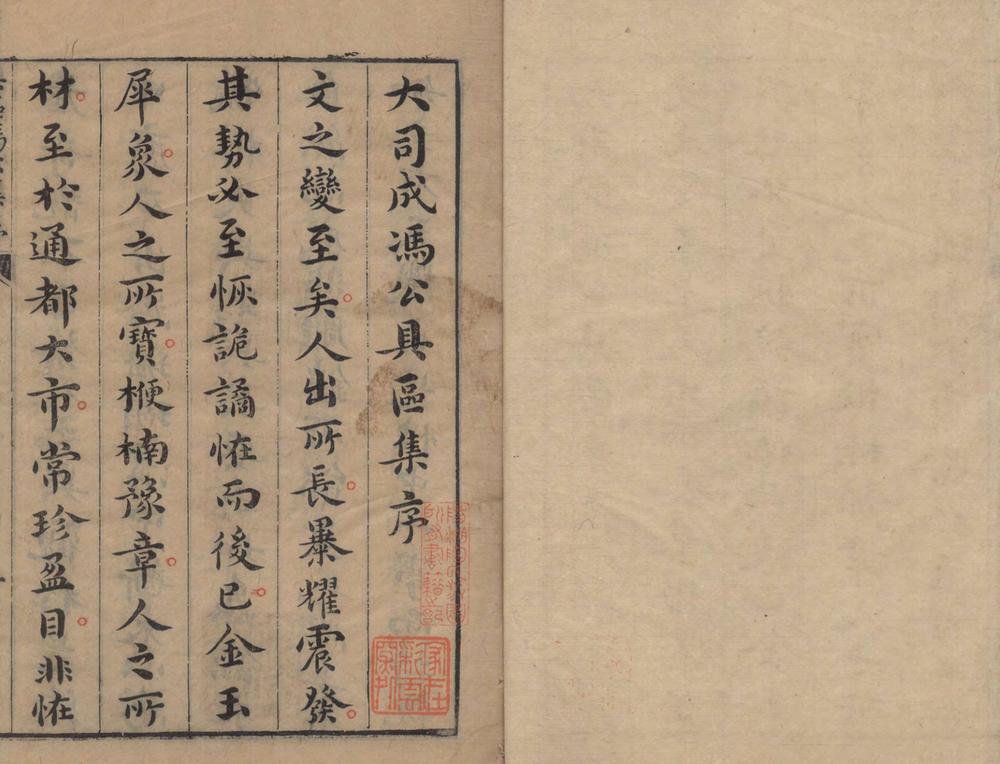 大司成馮公具區集序
文之變至矣人出所長㬥耀震發
其勢必至恢詭譎恠而後已金玉
犀象人之所寶楩楠豫章人之所
材至於通都大市常珍盈目非恠